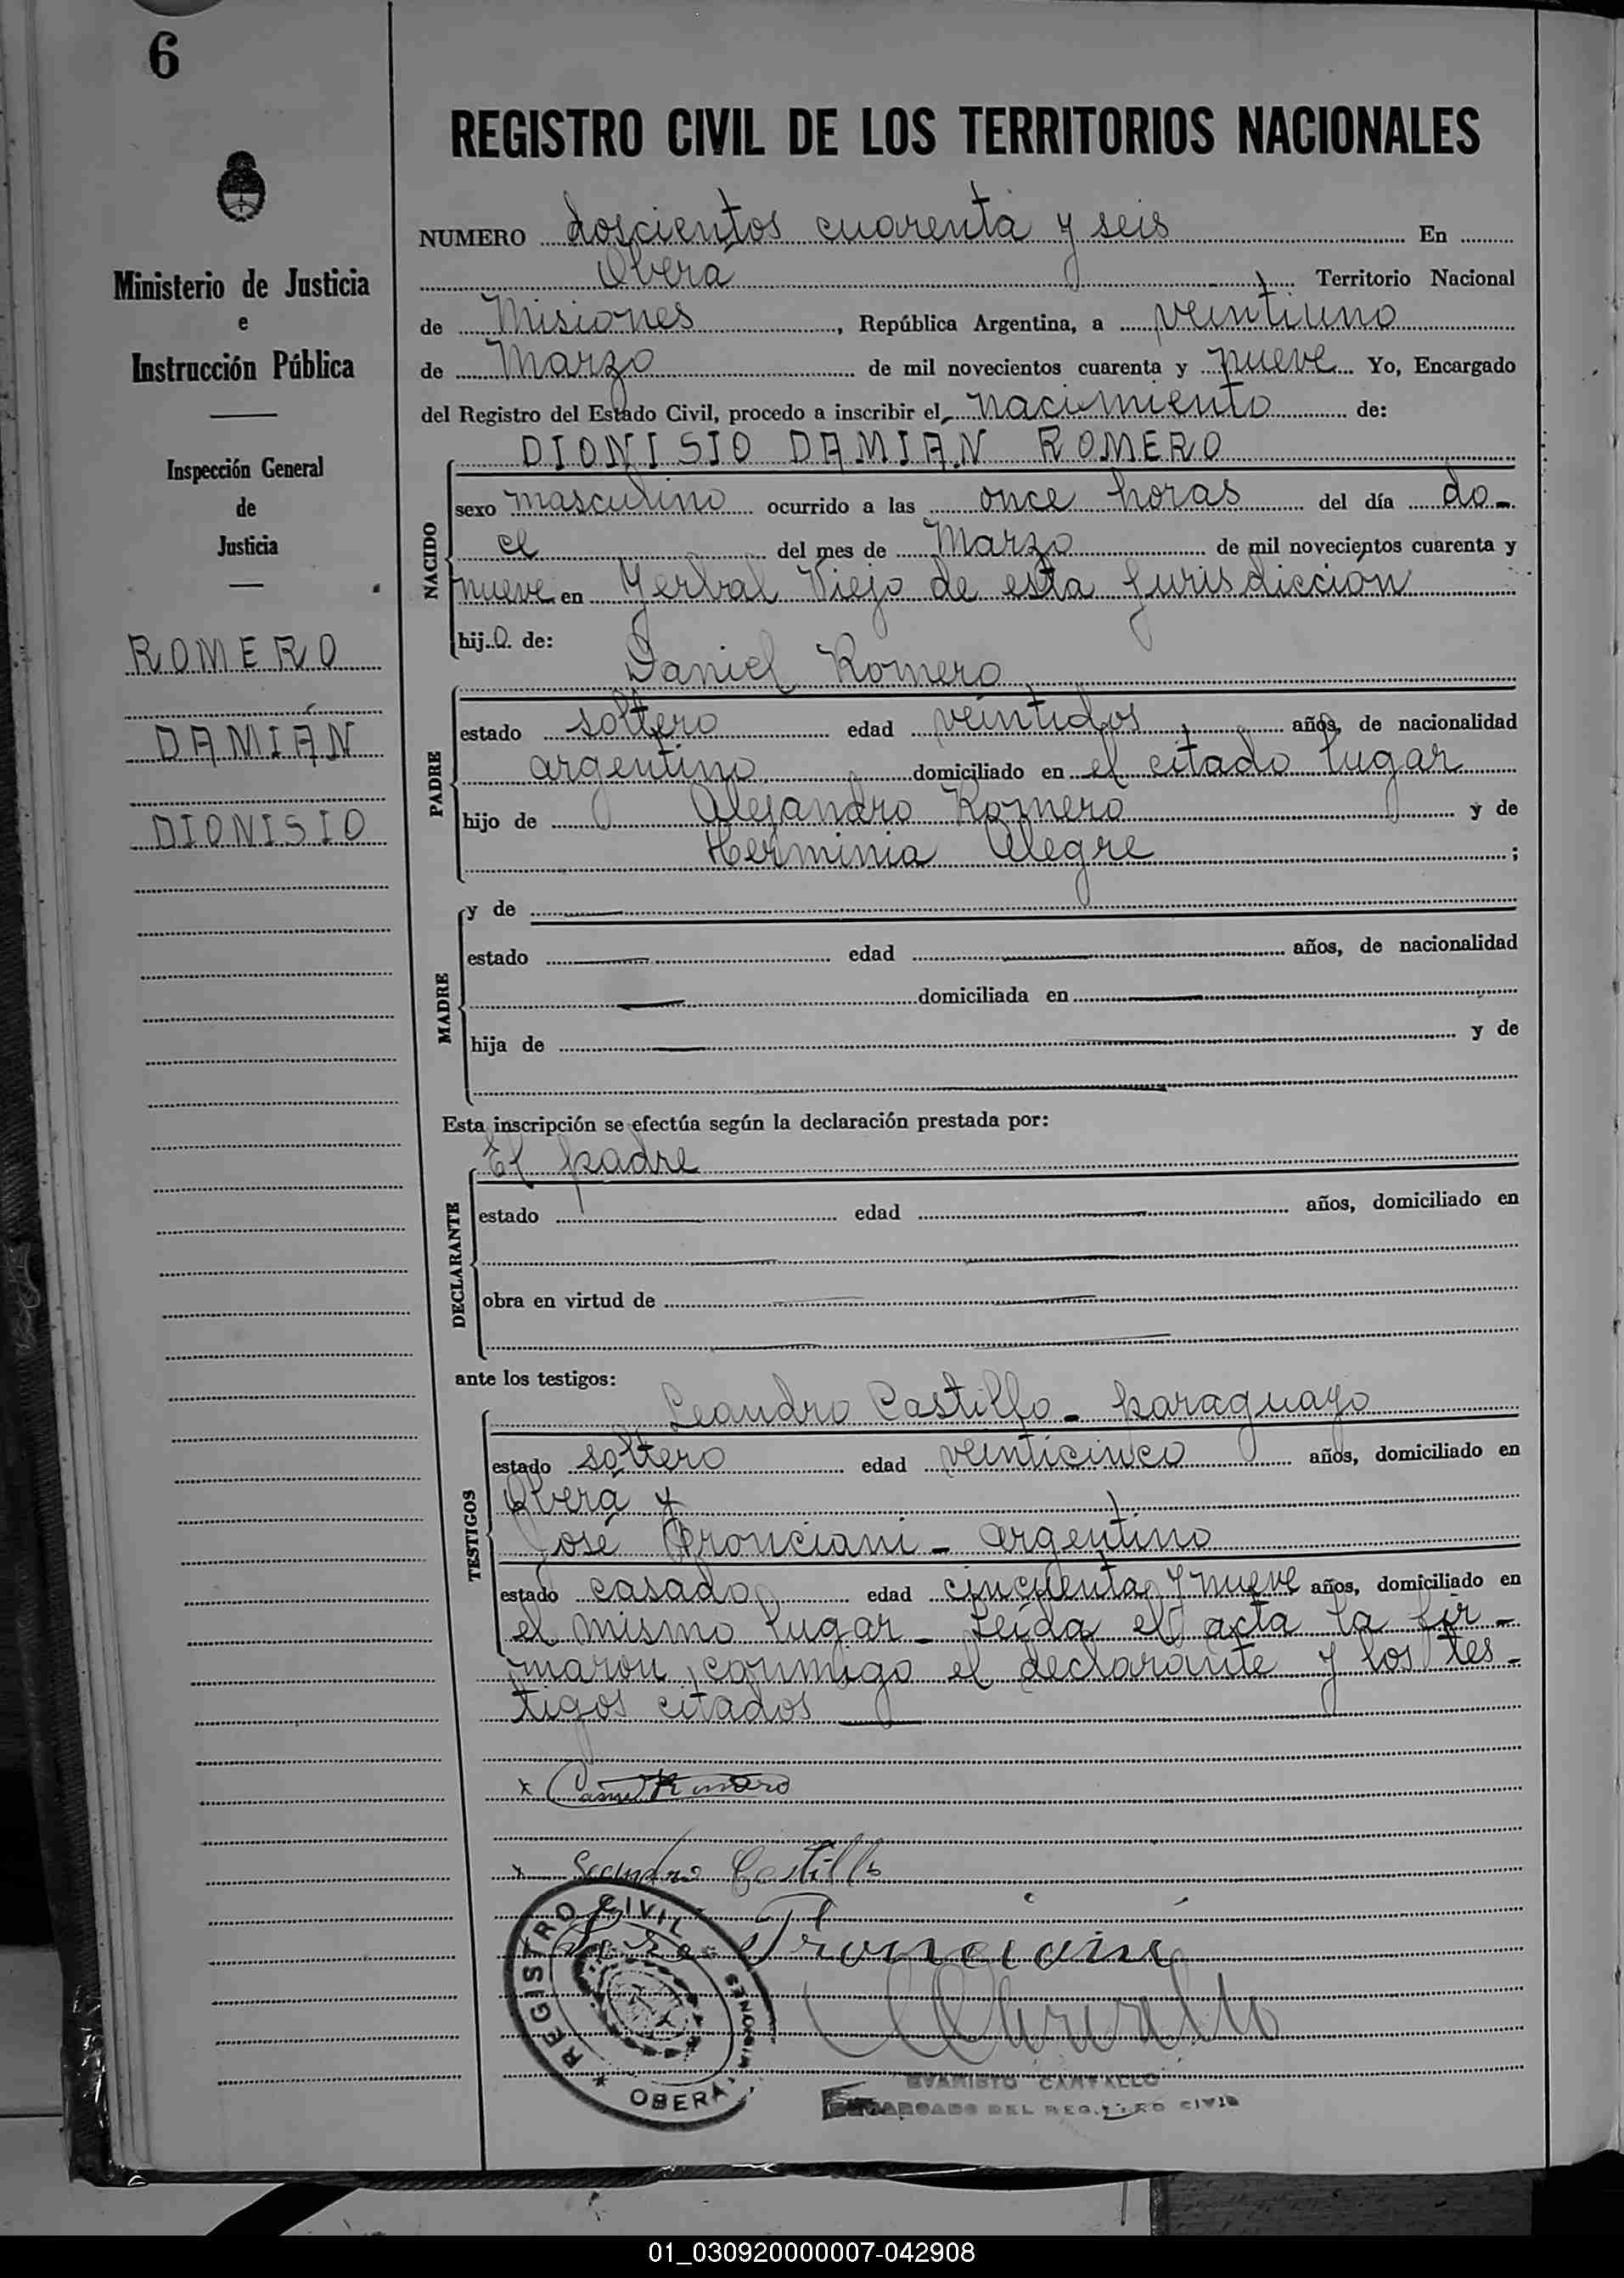 6
REGISTRO CIVIL DE LOS TERRITORIOS NACIONALES
Ministerio de Justicia
e
Instrucción Pública
Inspección General
de
Justicia
ROMERO
DAMIÁN
DIONISIO
NUMERO doscientos cuarenta y seis En
Oberá Territorio Nacional
de Misiones, República Argentina, a veintiuno
de Marzo de mil novecientos cuarenta y nueve Yo, Encargado
del Registro del Estado Civil, procedo a inscribir el nacimiento de:
DIONISIO DAMIAN ROMERO
NACIDO
sexo masculino ocurrido a las once horas del día do-
ce del mes de Marzo de mil novecientos cuarenta y
nueve en Yerbal Viejo de esta jurisdicción
hijo de:
Daniel Romero
PADRE
estado soltero edad veintidos años, de nacionalidad
argentino domiciliado en el citado lugar
hijo de Alejandro Romero y de
Herminia Alegre ;
MADRE
y de
estado edad años, de nacionalidad
domiciliada en
hija de y de
Esta inscripción se efectúa según la declaración prestada por:
El padre
DECLARANTE
estado edad años, domiciliado en
obra en virtud de
ante los testigos:
Leandro Castillo - paraguayo
TESTIGOS
estado soltero edad veinticinco años, domiciliado en
Oberá y
José Fronciani - argentino
estado casado edad cincuenta y nueve años, domiciliado en
el mismo lugar - Leída el acta la fir-
maron conmigo el declarante y los tes-
tigos citados
x Daniel Romero
x Leandro Castillo
José Fronciani
REGISTRO CIVIL
OBERÁ, MISIONES
EVARISTO CARVALLO
ENCARGADO DEL REGISTRO CIVIL
01_030920000007-042908